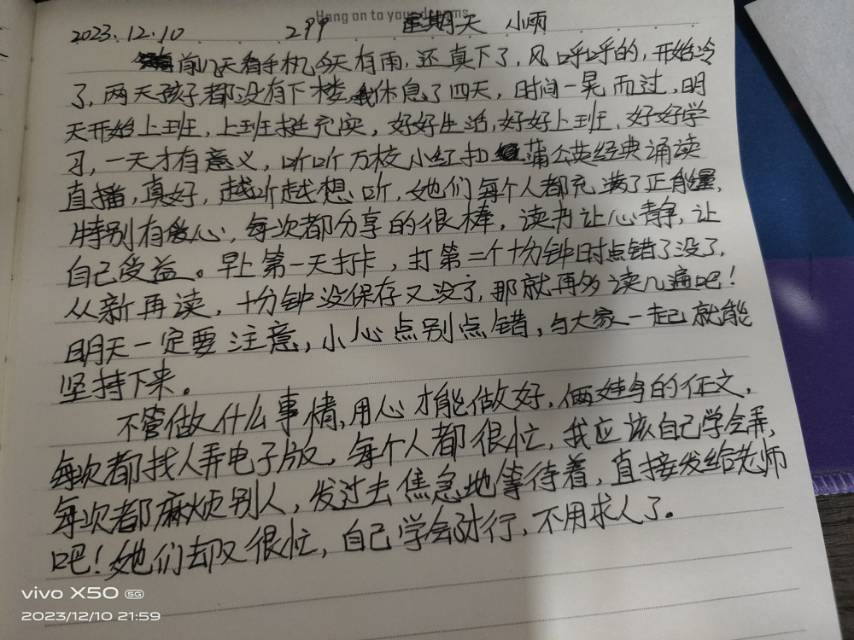 Hang on to your dreams
2023.12.10 299 星期天 小雨
前几天看手机今天有雨,还真下了,风呼呼的,开始冷
了,两天孩子都没有下楼,休息了四天,时间一晃而过,明
天开始上班,上班挺充实,好好生活,好好上班,好好学
习,一天才有意义,听听万枝小红扣蒲公英经典诵读
直播,真好,越听越想听,她们每个人都充满了正能量,
特别有爱心,每次都分享的很棒,读书让心静,让
自己受益。早上第一天打卡,打第二个十分钟时点错了没了,
从新再读,十分钟没保存又没了,那就再多读几遍吧!
明天一定要注意,小心点别点错,与大家一起就能
坚持下来。
不管做什么事情,用心才能做好,俩娃的征文,
每次都找人弄电子版,每个人都很忙,我应该自己学会弄,
每次都麻烦别人,发过去焦急地等待着,直接发给老师
吧!她们却又很忙,自己学会才行,不用求人了。
vivo X50 5G
2023/12/10 21:59